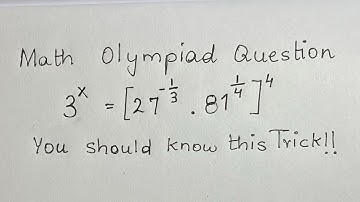 Math Olympiad Question
3^x = [27^{-1/3} . 81^{1/4}]^4
You should know this Trick!!